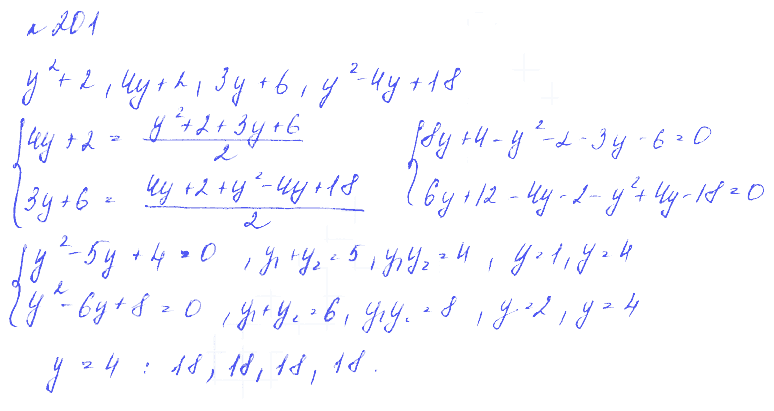 № 201
y²+2, 4y+2, 3y+6, y²-4y+18
{ 4y+2 = (y²+2+3y+6)/2
{ 3y+6 = (4y+2+y²-4y+18)/2
{ 8y+4-y²-2-3y-6=0
{ 6y+12-4y-2-y²+4y-18=0
{ y²-5y+4=0, y₁+y₂=5, y₁y₂=4, y=1, y=4
{ y²-6y+8=0, y₁+y₂=6, y₁y₂=8, y=2, y=4
y=4 : 18, 18, 18, 18.